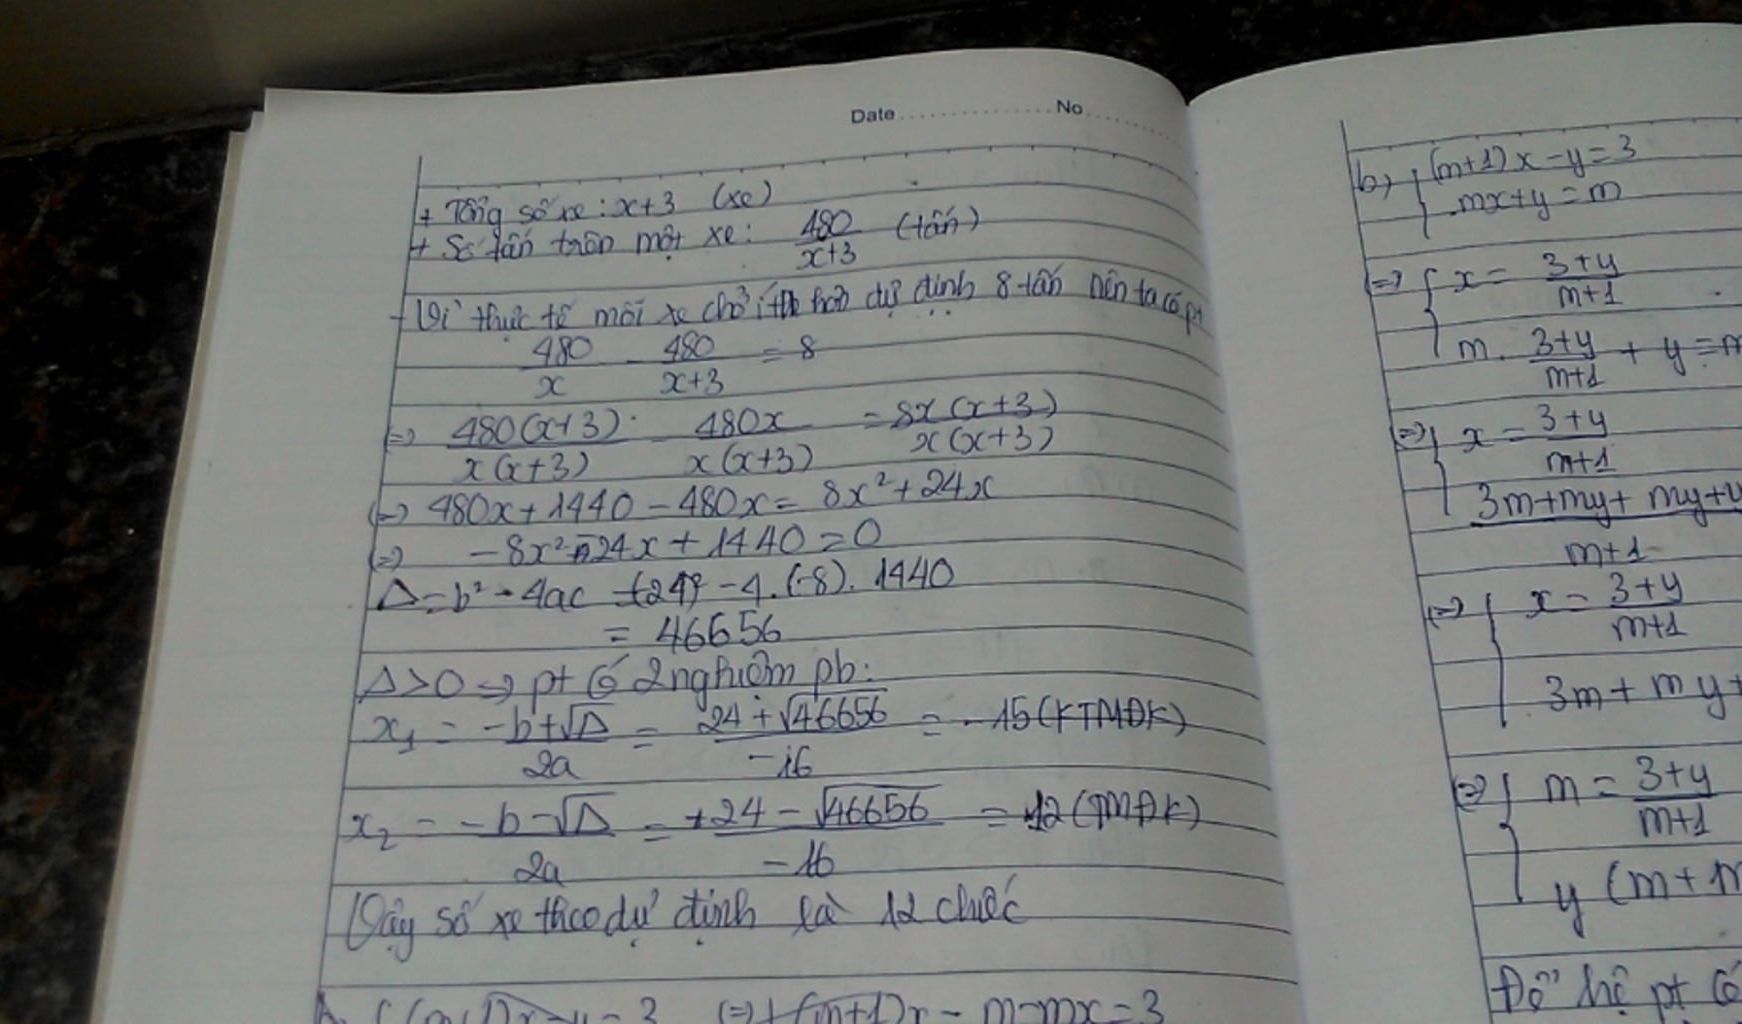 Date No
+ Tổng số xe : x+3 (xe)
+ Số tấn trên một xe : 480/(x+3) (tấn)
- Vì thực tế mỗi xe chở ít hơn dự định 8 tấn nên ta có pt
480/x - 480/(x+3) = 8
(=) 480(x+3)/x(x+3) - 480x/x(x+3) = 8x(x+3)/x(x+3)
(=) 480x + 1440 - 480x = 8x² + 24x
(=) -8x² - 24x + 1440 = 0
Δ = b² - 4ac = (24)² - 4.(-8).1440
= 46656
Δ > 0 => pt có 2 nghiệm pb :
x₁ = (-b+√Δ)/2a = (24+√46656)/-16 = -15 (KTMĐK)
x₂ = (-b-√Δ)/2a = (+24-√46656)/-16 = 12 (TMĐK)
Vậy số xe theo dự định là 12 chiếc
(=) (m+1)x - m-mx = 3
b, { (m+1)x - y = 3
mx + y = m
(=) { x = (3+y)/(m+1)
m. (3+y)/(m+1) + y = m
(=) { x = (3+y)/(m+1)
3m+my+ my+y
m+1
(=) { x = (3+y)/(m+1)
3m + my +
(=) { m = (3+y)/(m+1)
y (m + m
Để hệ pt có